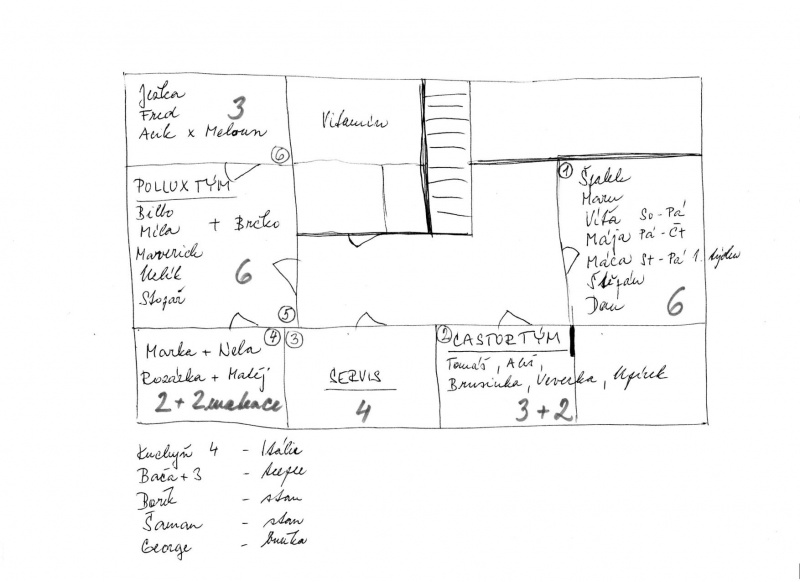 Ježka
Fred
3
Auk x Meloun
6
Vitamín
POLLUX TÝM
Bilbo
Míla + Brčko
Maverick
Velík
6
Stopař
5
1
Špalek
Maru
Víťa So - Pá
Mája Pá - Čt
Máca St - Pá 1. týden
Štěpán
Dan
6
4
Marka + Nela
Rozárka + Matěj
2 + 2 matrace
3
SERVIS
4
2
CASTOR TÝM
Tomáš, Aleš,
Brusinka, Veverka, Upírek
3 + 2
Kuchyň 4 - Itálie
Bača + 3 - teepee
Bořík - stan
Šaman - stan
George -